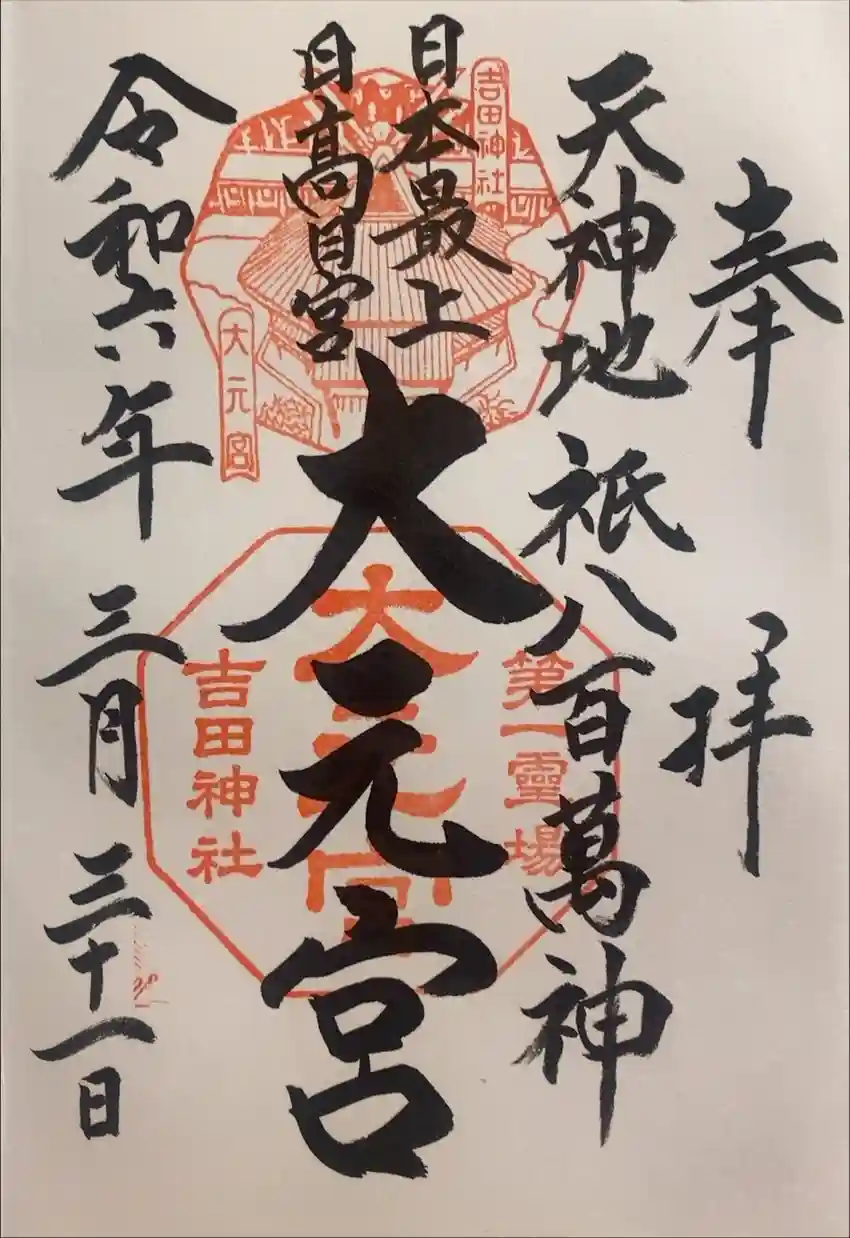 奉拝
天神地祇八百萬神
日本最上
日高日宮
大元宮
令和六年三月三十一日
吉田神社
大元宮
第一靈場
大元宮
吉田神社